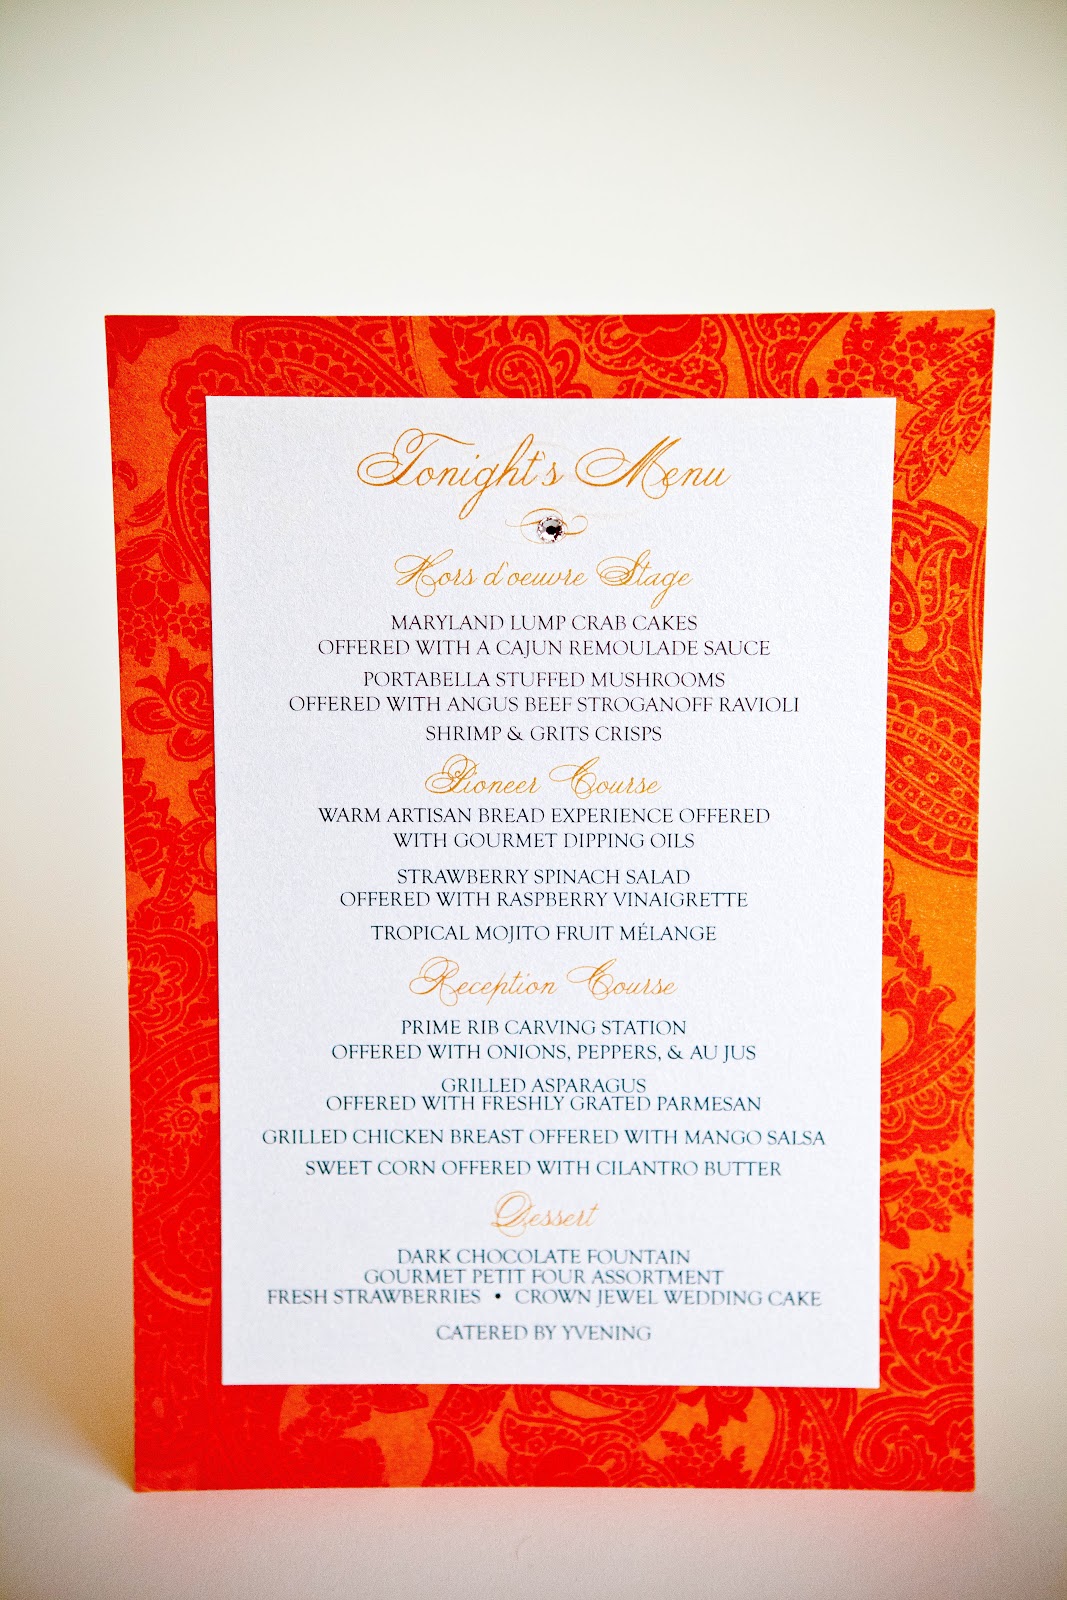 Tonight's Menu
Hors d'oeuvre Stage
MARYLAND LUMP CRAB CAKES
OFFERED WITH A CAJUN REMOULADE SAUCE
PORTABELLA STUFFED MUSHROOMS
OFFERED WITH ANGUS BEEF STROGANOFF RAVIOLI
SHRIMP & GRITS CRISPS
Pioneer Course
WARM ARTISAN BREAD EXPERIENCE OFFERED
WITH GOURMET DIPPING OILS
STRAWBERRY SPINACH SALAD
OFFERED WITH RASPBERRY VINAIGRETTE
TROPICAL MOJITO FRUIT MÉLANGE
Reception Course
PRIME RIB CARVING STATION
OFFERED WITH ONIONS, PEPPERS, & AU JUS
GRILLED ASPARAGUS
OFFERED WITH FRESHLY GRATED PARMESAN
GRILLED CHICKEN BREAST OFFERED WITH MANGO SALSA
SWEET CORN OFFERED WITH CILANTRO BUTTER
Dessert
DARK CHOCOLATE FOUNTAIN
GOURMET PETIT FOUR ASSORTMENT
FRESH STRAWBERRIES • CROWN JEWEL WEDDING CAKE
CATERED BY YVENING